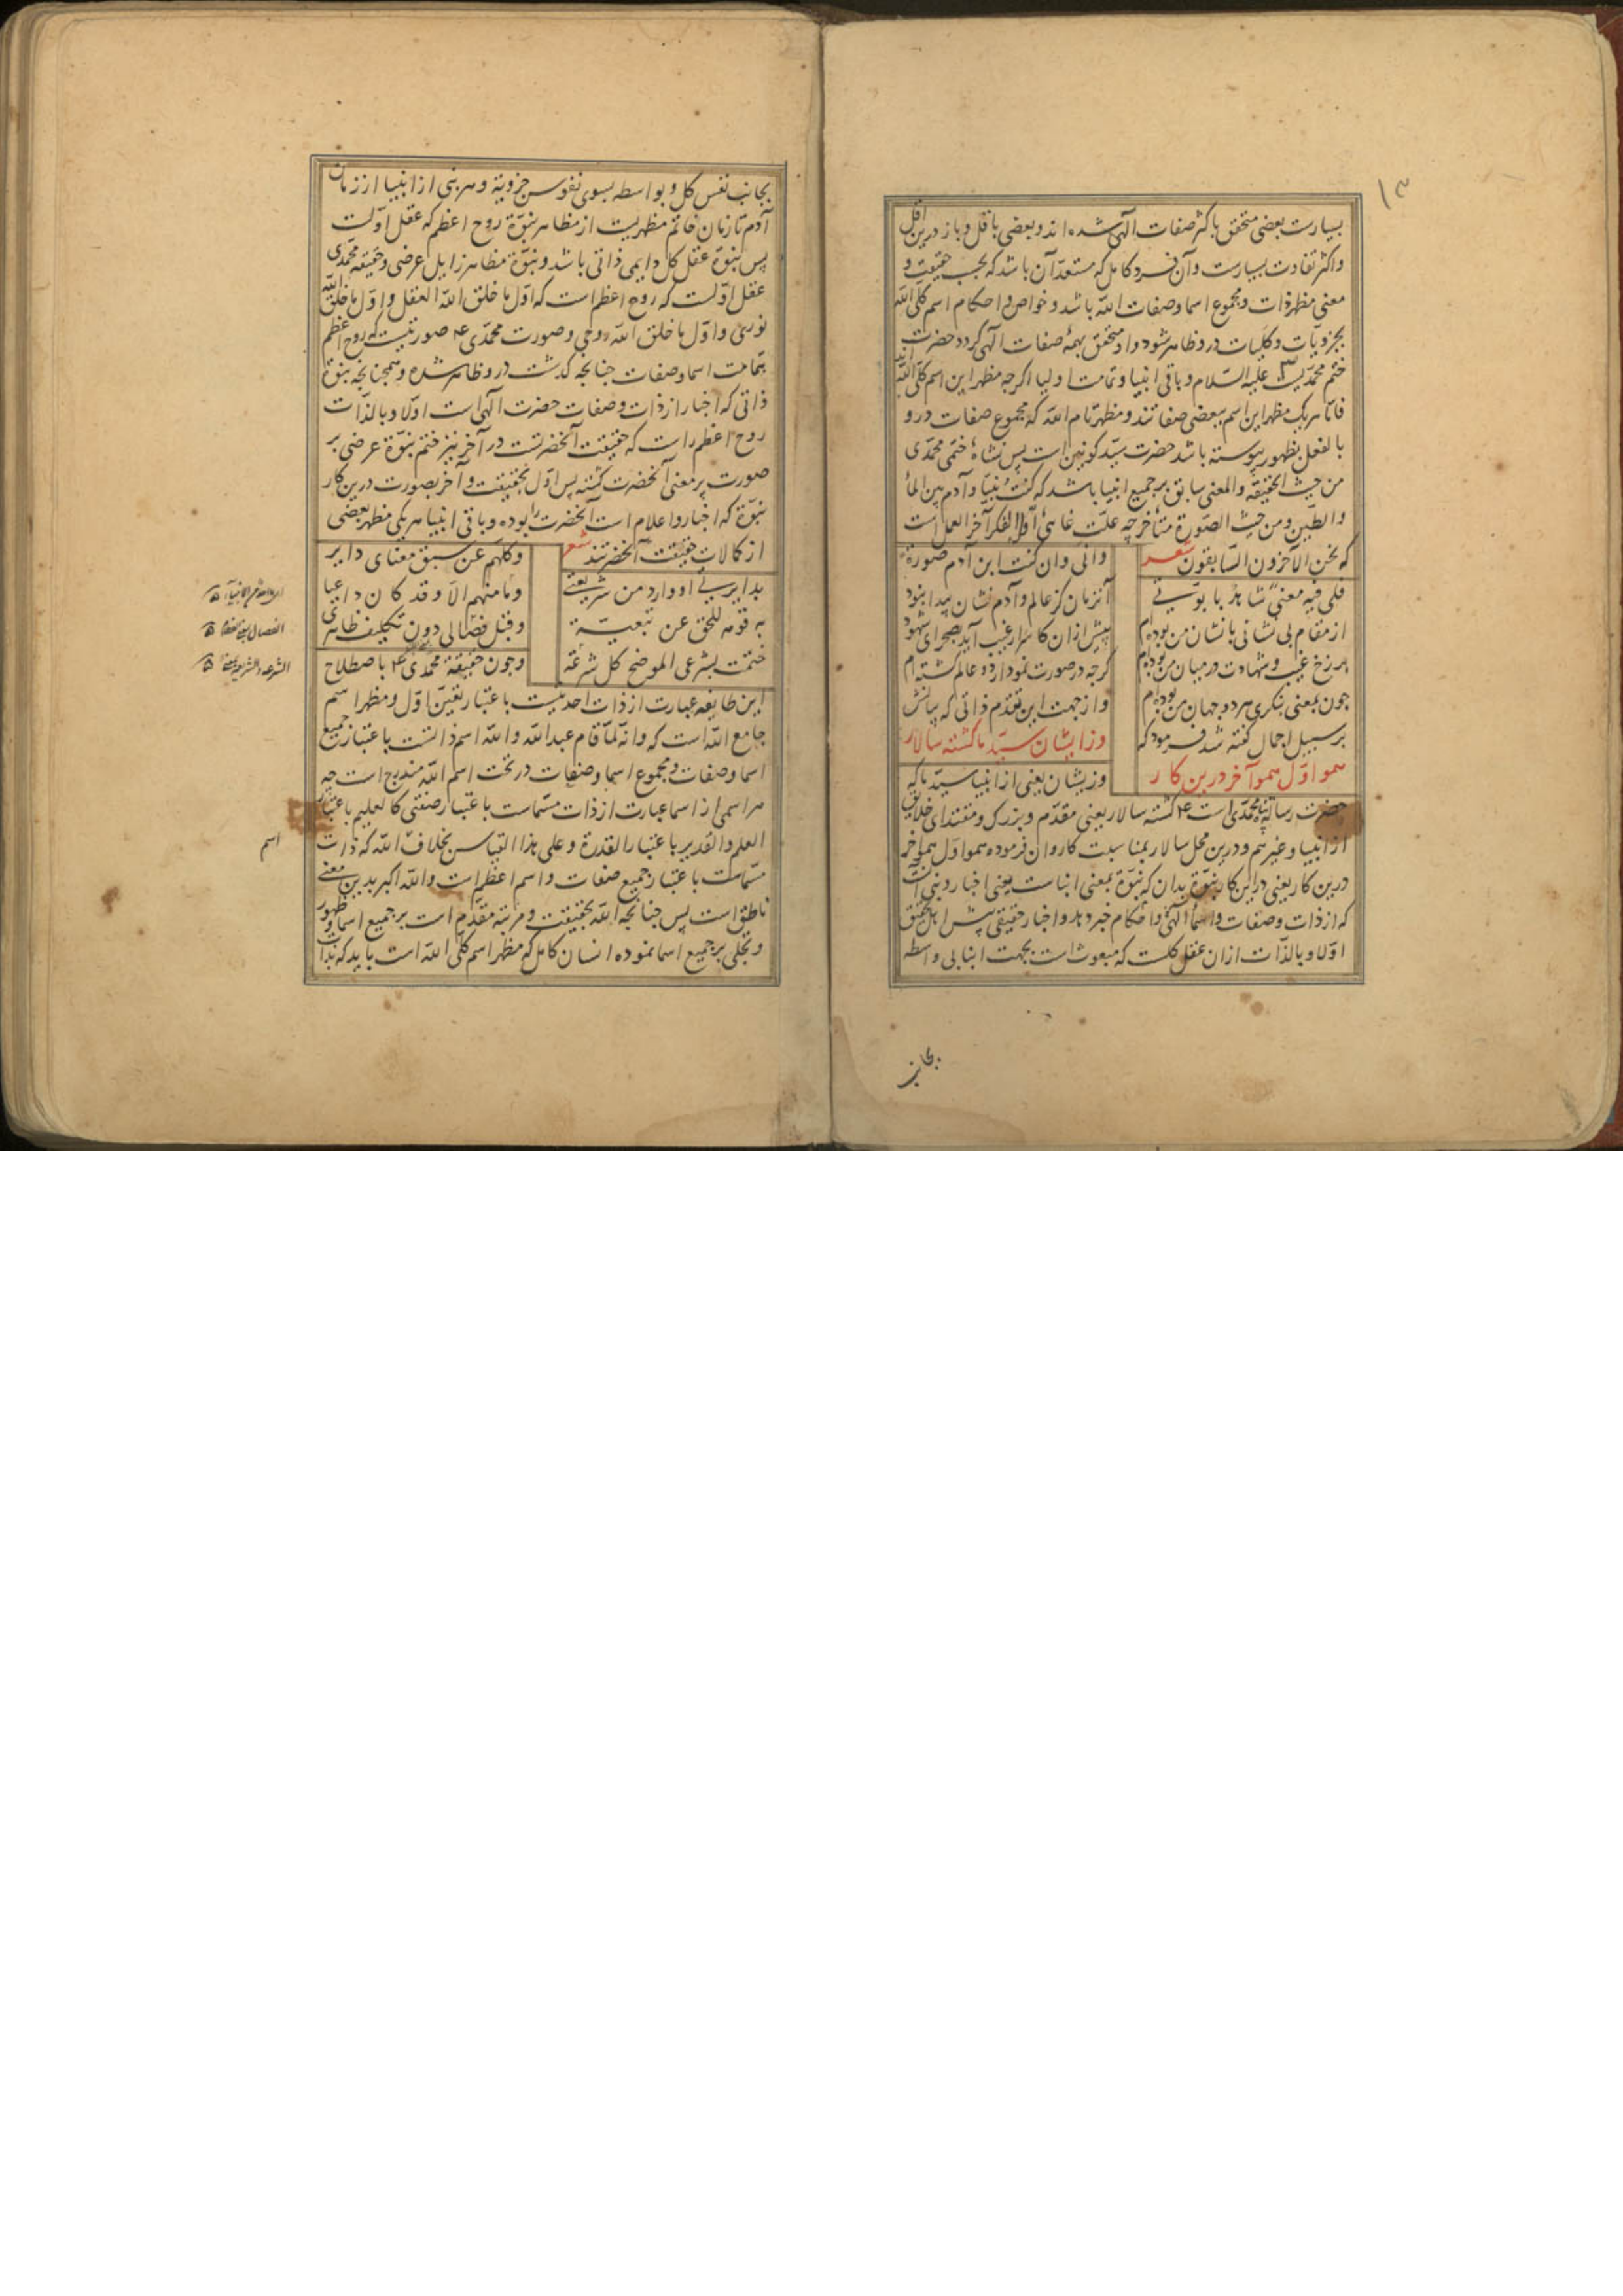 ۱۳
بسیارست بعضی متحقق باکثر صفات آلهی شده اند و بعضی باقل و باز درین اقل
و اکثر تفاوت بسیارست و آن فرد کامل که مستعد آن باشد که بحسب حقیقت و
معنی مظهر ذات و مجموع اسما و صفات الله باشد و خواص و احکام اسم کلی الله
بجزویات و کلیات درو ظاهر شود و او متحقق بهمهٔ صفات آلهی کردد حضرت
ختم محمدیست علیه السلام و باقی انبیا و تمامت اولیا اکرچه مظهر این اسم کلی الله اند
فاما هریک مظهر این اسم ببعضی صفاتند و مظهر نام الله که مجموع صفات درو
بالفعل بظهور پیوسته باشد حضرت سید کونین است پس نشاهٔ ختمی محمدی
من حیث الحقیقة والمعنی سابق بر جمیع انبیا باشد که کنت نبیا و آدم بین الماء
والطین و من حیث الصورة متاخر چه علت غائی اول الفکر آخر العمل است
که نحن الآخرون السابقون شعر
وانی وان کنت ابن آدم صورة
فلی فیه معنی شاهد بابوتی
آنزمان کز عالم و آدم نشان پیدا نبود
از مقام بی نشانی بانشان من بوده ام
پیش ازان کاسرار غیب آید بصحرای شهود
برزخ غیب و شهادت درمیان من بوده ام
کرچه در صورت نمودار دو عالم کشته ام
چون بمعنی بنکری هر دو جهان من بوده ام
و از جهت این تقدم ذاتی که بیانش
بر سبیل اجمال کفته شد فرمود که
وزایشان سید ما کشته سالار
همو اول همو آخر درین کار
وزیشان یعنی از انبیا سید ما که
حضرت رسالة پناه محمدی است ع۴ کشته سالار یعنی مقدم و بزرک و مقتدای خلایق
از انبیا و غیرهم و درین محل سالار بمناسبت کاروان فرموده همو اول همو آخر
درین کار یعنی دراین کار نبوة بدان که نبوة بمعنی انباست یعنی اخبار و نبی آنست
که از ذات و صفات و اسماء الهی و احکام خبر دهد و اخبار حقیقی پیش اهل تحقیق
اولا و بالذات ازان عقل کلست که مبعوث است بجهت انبا بی واسطه
بجانب
بجانب نفس کل و بواسطه بسوی نفوس جزویة و هر نبی از انبیا از زمان
آدم تا زمان خاتم مظهریست از مظاهر نبوة روح اعظم که عقل اولست
پس نبوة عقل کل دایمی ذاتی باشد و نبوة مظاهر زایل عرضی و حقیقة محمدی
عقل اولست که روح اعظم است که اول ما خلق الله العقل و اول ما خلق الله
نوری و اول ما خلق الله روحی و صورت محمدی ع۴ صورتیست که روح اعظم
بتمامت اسما و صفات چنانچه کدشت درو ظاهر شده و همچنانچه نبوة
ذاتی که اخبار از ذات و صفات حضرت آلهی است اولا و بالذات
روح اعظم راست که حقیقت آنحضرتست در آخر نیز ختم نبوة عرضی بر
صورت پرمعنی آنحضرت کشته پس اول بحقیقت و آخر بصورت درین کار
نبوة که اخبار و اعلام است آنحضرت را بوده و باقی انبیا هریکی مظهر بعضی
از کمالات حقیقت آنحضرتند شعر
وکلهم عن سبق معنای دایر
بدایرتی او وارد من شریعتی
وما منهم الا وقد کان داعیا
به قومه للحق عن تبعیة
وقبل فصالی دون تکلیف ظاهری
ختمت بشرعی الموضح کل شرعة
وچون حقیقة محمدی ع۴ باصطلاح
این طایفه عبارت از ذات احدیست باعتبار تعین اول و مظهر اسم
جامع الله است که وانه لما قام عبدالله و الله اسم ذاتست باعتبار جمیع
اسما و صفات و مجموع اسما و صفات در تحت اسم الله مندرج است چه
هر اسمی از اسما عبارت از ذات مسماست باعتبار صفتی کالعلیم باعتبار
العلم والقدیر باعتبار القدرة وعلی هذا القیاس بخلاف الله که ذات
مسماست باعتبار جمیع صفات و اسم اعظم است و الله اکبر بدین معنی
ناطق است پس چنانچه الله بحقیقت و مرتبه مقدم است بر جمیع اسما و ظهور
و تجلی بر جمیع اسما نموده انسان کامل که مظهر اسم کلی الله است باید که بذات
اسم